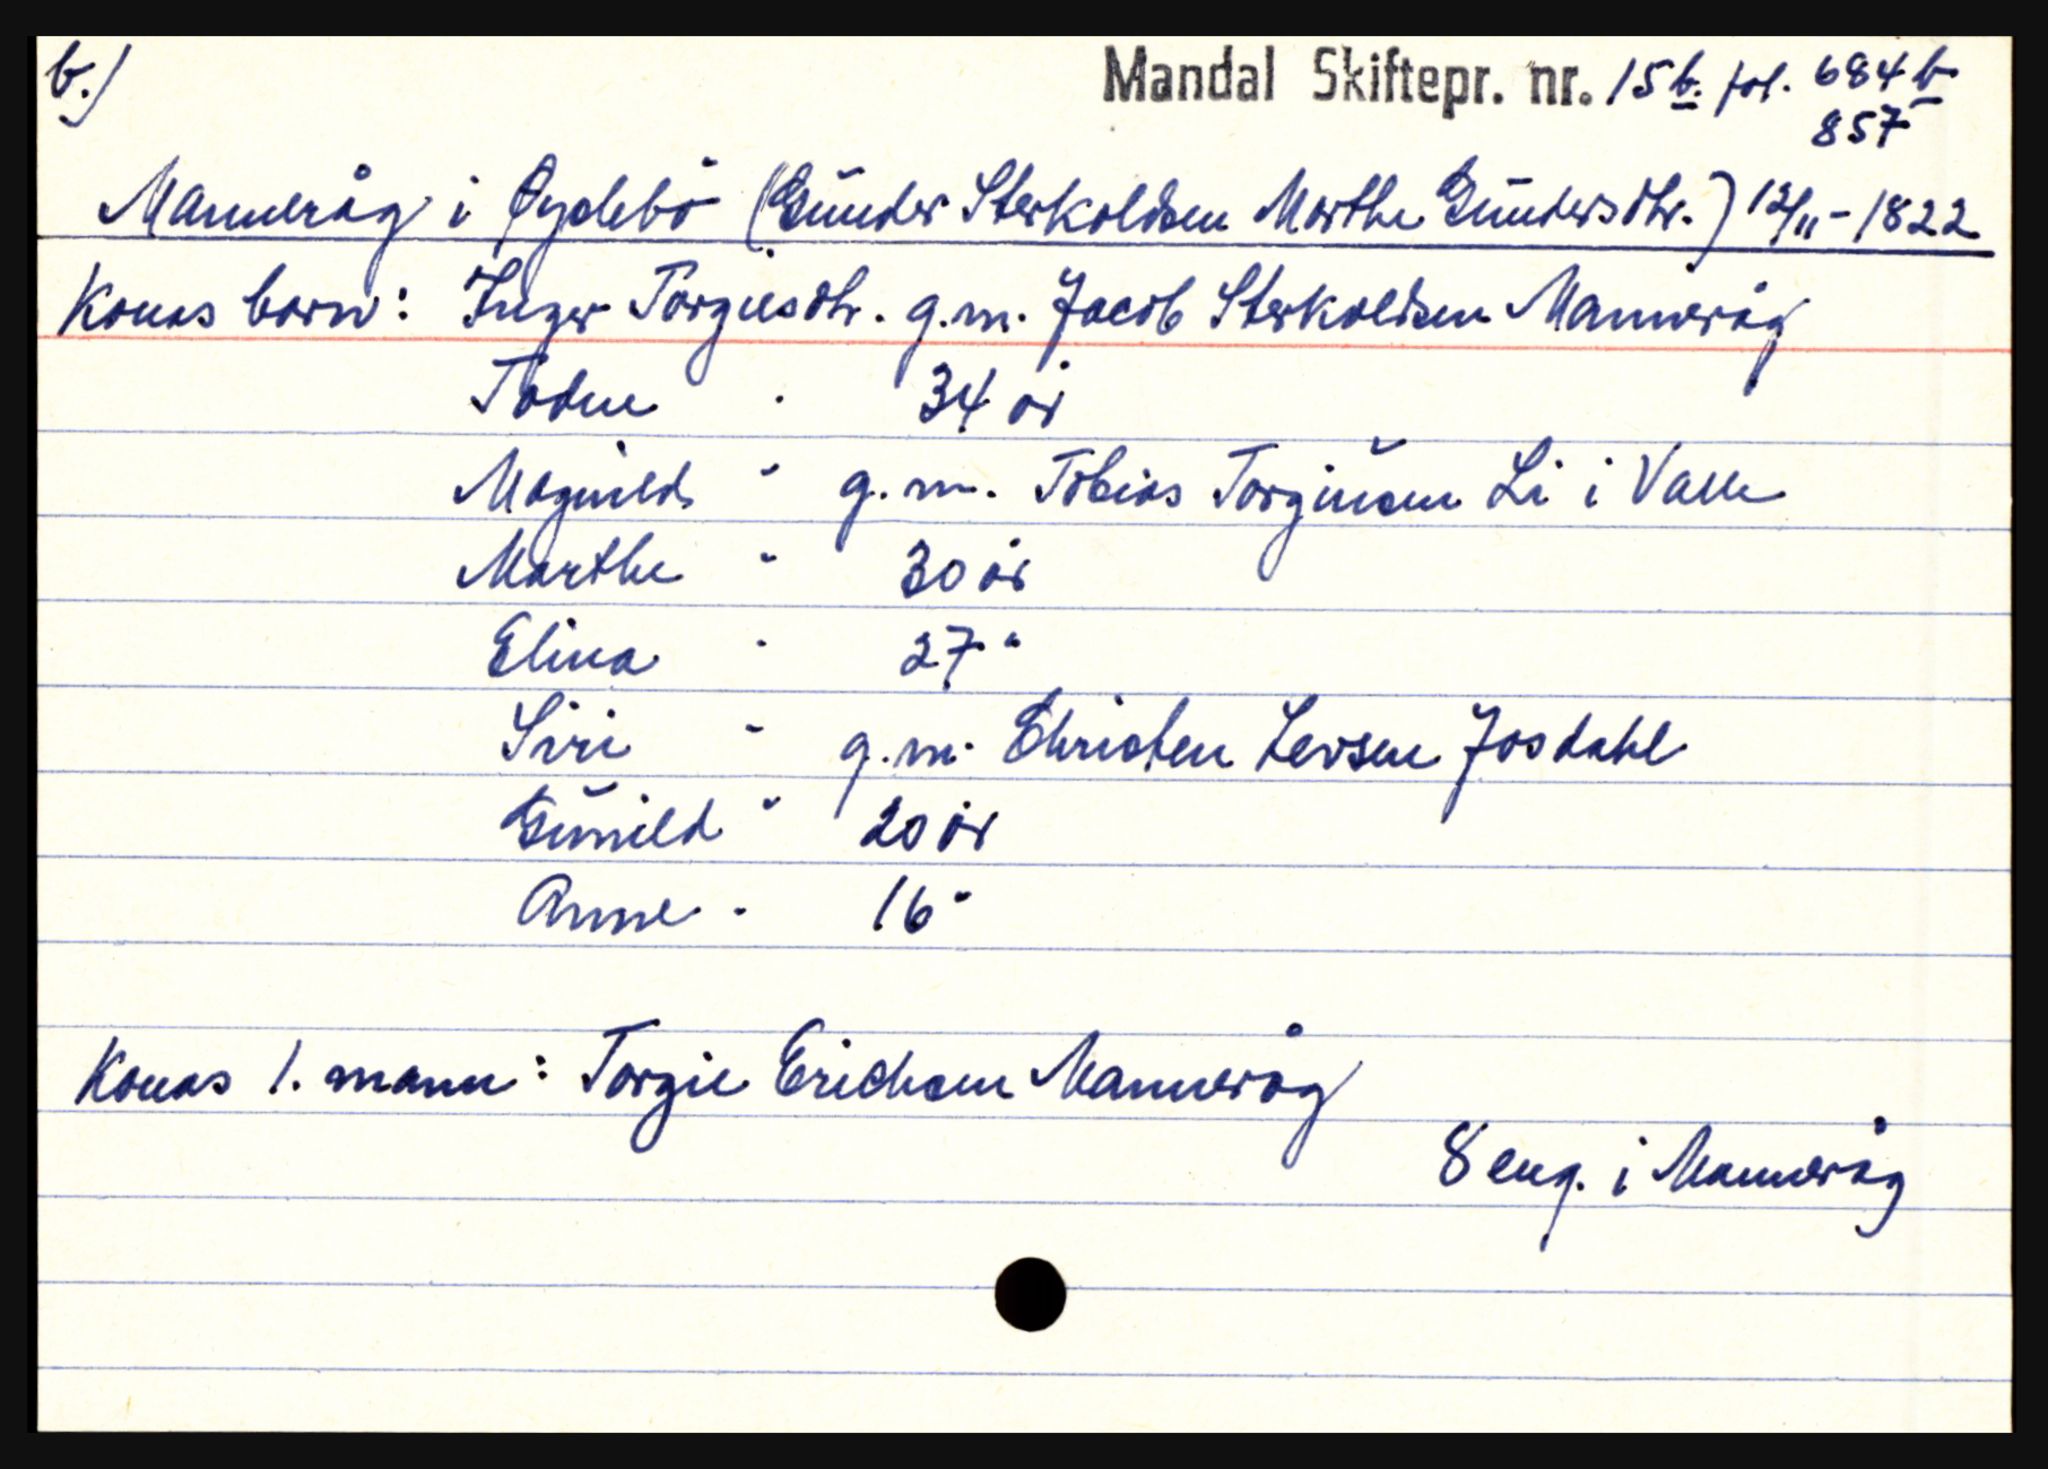 b.)
Mandal Skiftepr. nr. 15b. fol. 684b
857
Manneråg i Øydebö (Gunder Sterkoldsen Marthe Gundersdtr.) 12/11-1822
Konas born: Inger Torgiesdtr. g.m. Jacob Sterkoldsen Manneråg
Todne " 34 år
Magnild " g.m. Tobias Torgiusen Li i Valle
Marthe " 30 år
Elina " 27 "
Siri " g.m. Christen Larsen Josdahl
Gunild " 20 år
Anne " 16 "
Konas 1. mann: Torgie Erichsen Manneråg
8 eng. i Manneråg